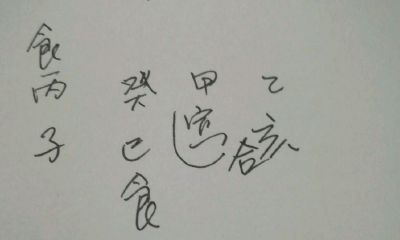 食
丙 癸 甲 乙
子 巳 寅 合 亥
食